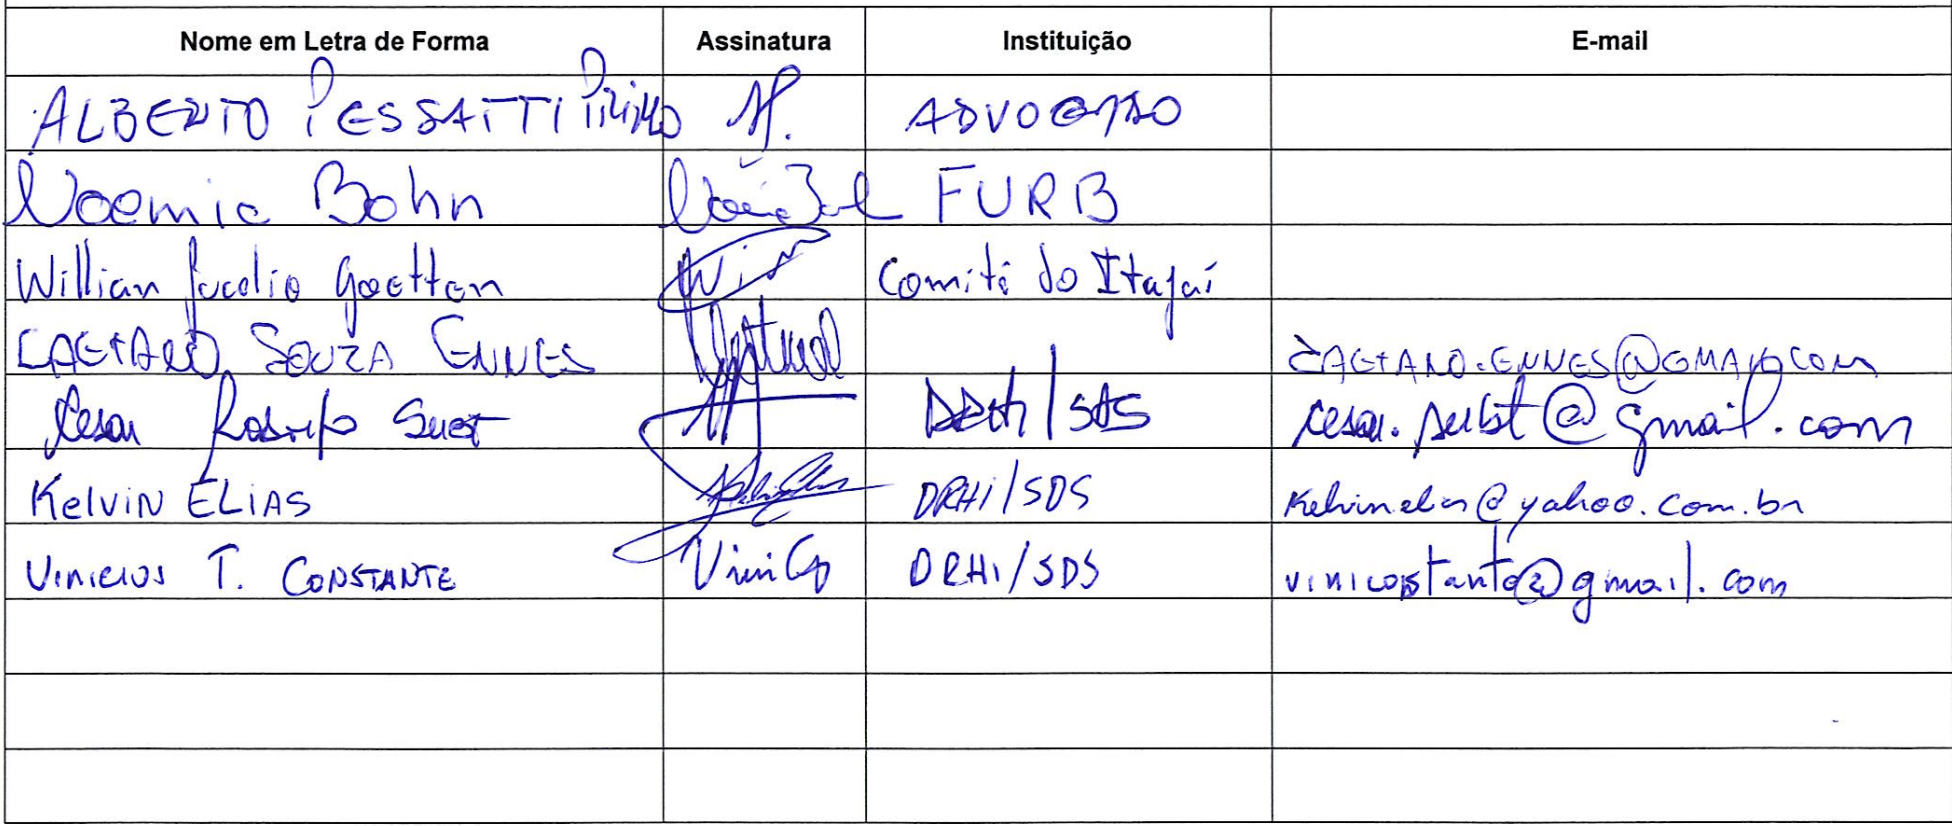 Nome em Letra de Forma Assinatura Instituição E-mail
ALBERTO PESSATTI ADVOGADO
Noemia Bohn FURB
Willian Jucelio Goetten Comitê do Itajaí
CAETANO SOUZA ENNES CAETANO.ENNES@GMAIL.COM
Cesar Rodolfo Seibt DRHI/SDS cesar.seibt@gmail.com
Kelvin ELIAS DRHI/SDS Kelvinelias@yahoo.com.br
VINICIUS T. CONSTANTE DRHI/SDS viniconstante@gmail.com